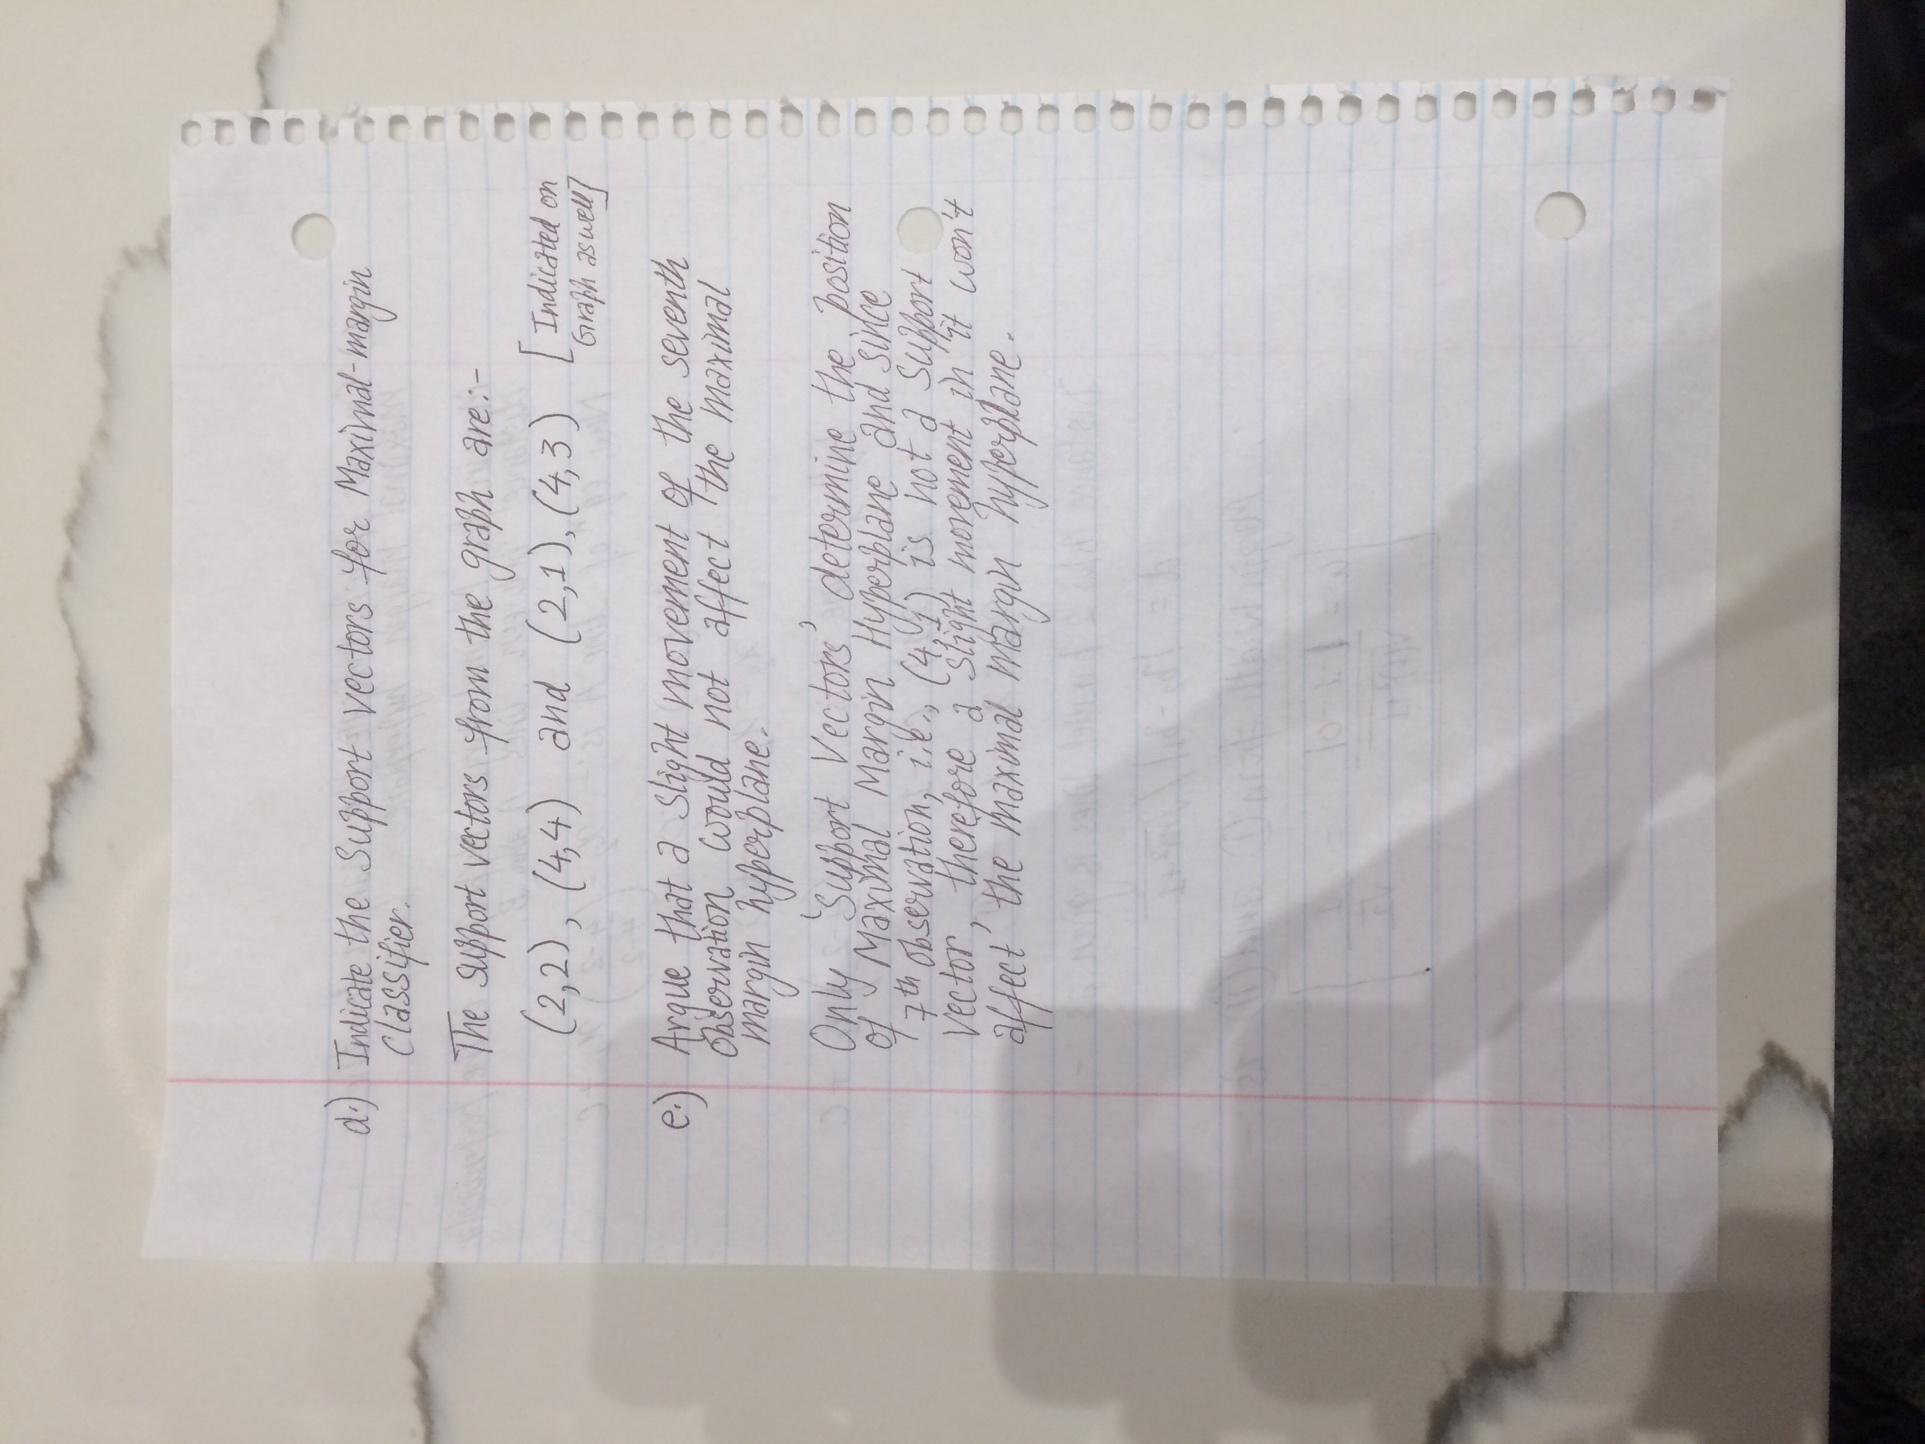 d.) Indicate the Support vectors for Maximal-margin
Classifier.
The support vectors from the graph are:-
(2,2), (4,4) and (2,1), (4,3) [Indicated on
Graph as well]
e.) Argue that a slight movement of the seventh
observation would not affect the maximal
margin hyperplane.
Only 'Support Vectors' determine the position
of Maximal Margin Hyperplane and since
7th observation, i.e., (4,1) is not a support
vector, therefore a slight movement in it won't
affect the maximal margin hyperplane.